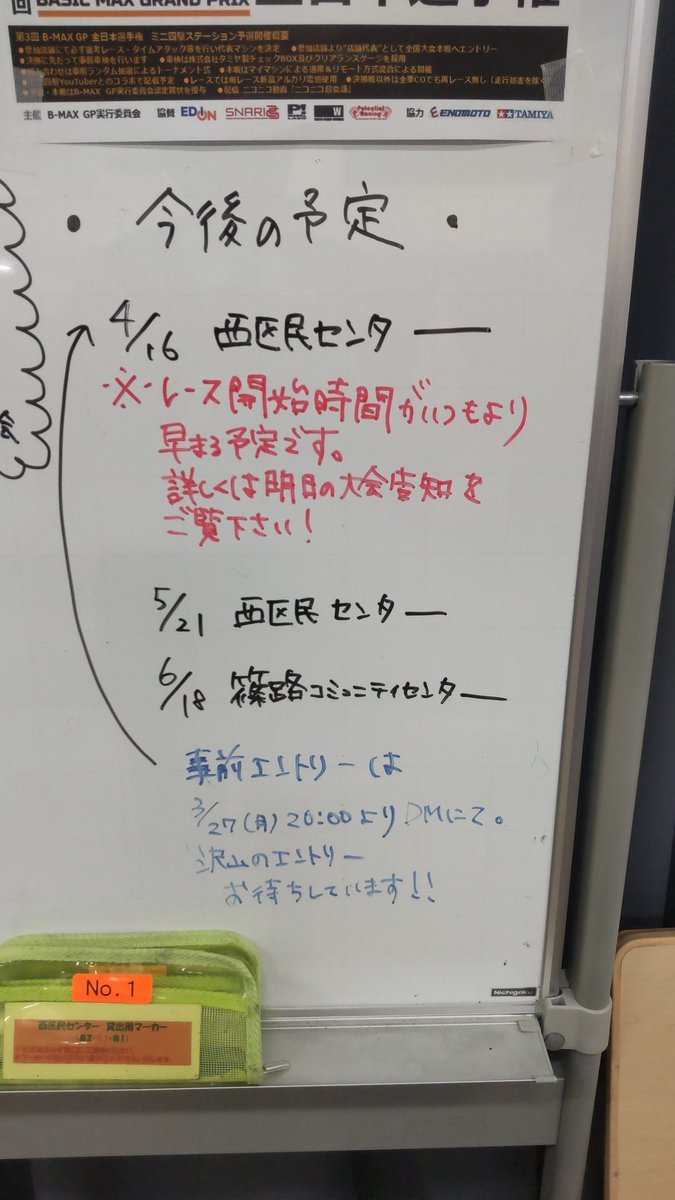 回 BASIC MAX GRAND PRIX
第3回 B-MAX GP 全日本選手権 ミニ四駆ステーション予選開催概要
●参加店舗にて必ず選考レース・タイムアタック等を行い代表マシンを決定 ●参加店舗より"店舗代表"として全国大会本戦へエントリー
●決勝に先だって事前車検を行います ●車検は株式会社タミヤ製チェックBOX及びクリアランスゲージを採用
み合わせは事前ランダム抽選によるトーナメント式 ●本戦はマイマシンによる通常&リモート方式混合による開催
四駆YouTuberとのコラボで配信予定 ●レースでは毎レース新品アルカリ電池使用 ●決勝戦以外は全車COでも再レース無し(走行妨害を除く
・本戦はB-MAX GP実行委員会認定賞状を授与 ●配信 ニコニコ動画『ニコニコ超会議』
主催 B-MAX GP実行委員会 協賛 EDION SNARIC Potential Racing 協力 ENOMOTO TAMIYA
・今後の予定・
4/16 西区民センター
※レース開始時間がいつもより
早まる予定です。
詳しくは明日の大会告知を
ご覧下さい!
5/21 西区民センター
6/18 篠路コミュニティセンター
事前エントリーは
3/27(月)20:00よりDMにて。
沢山のエントリー
お待ちしています!!
Nichigaku
No.1
西区民センター 貸出用マーカー